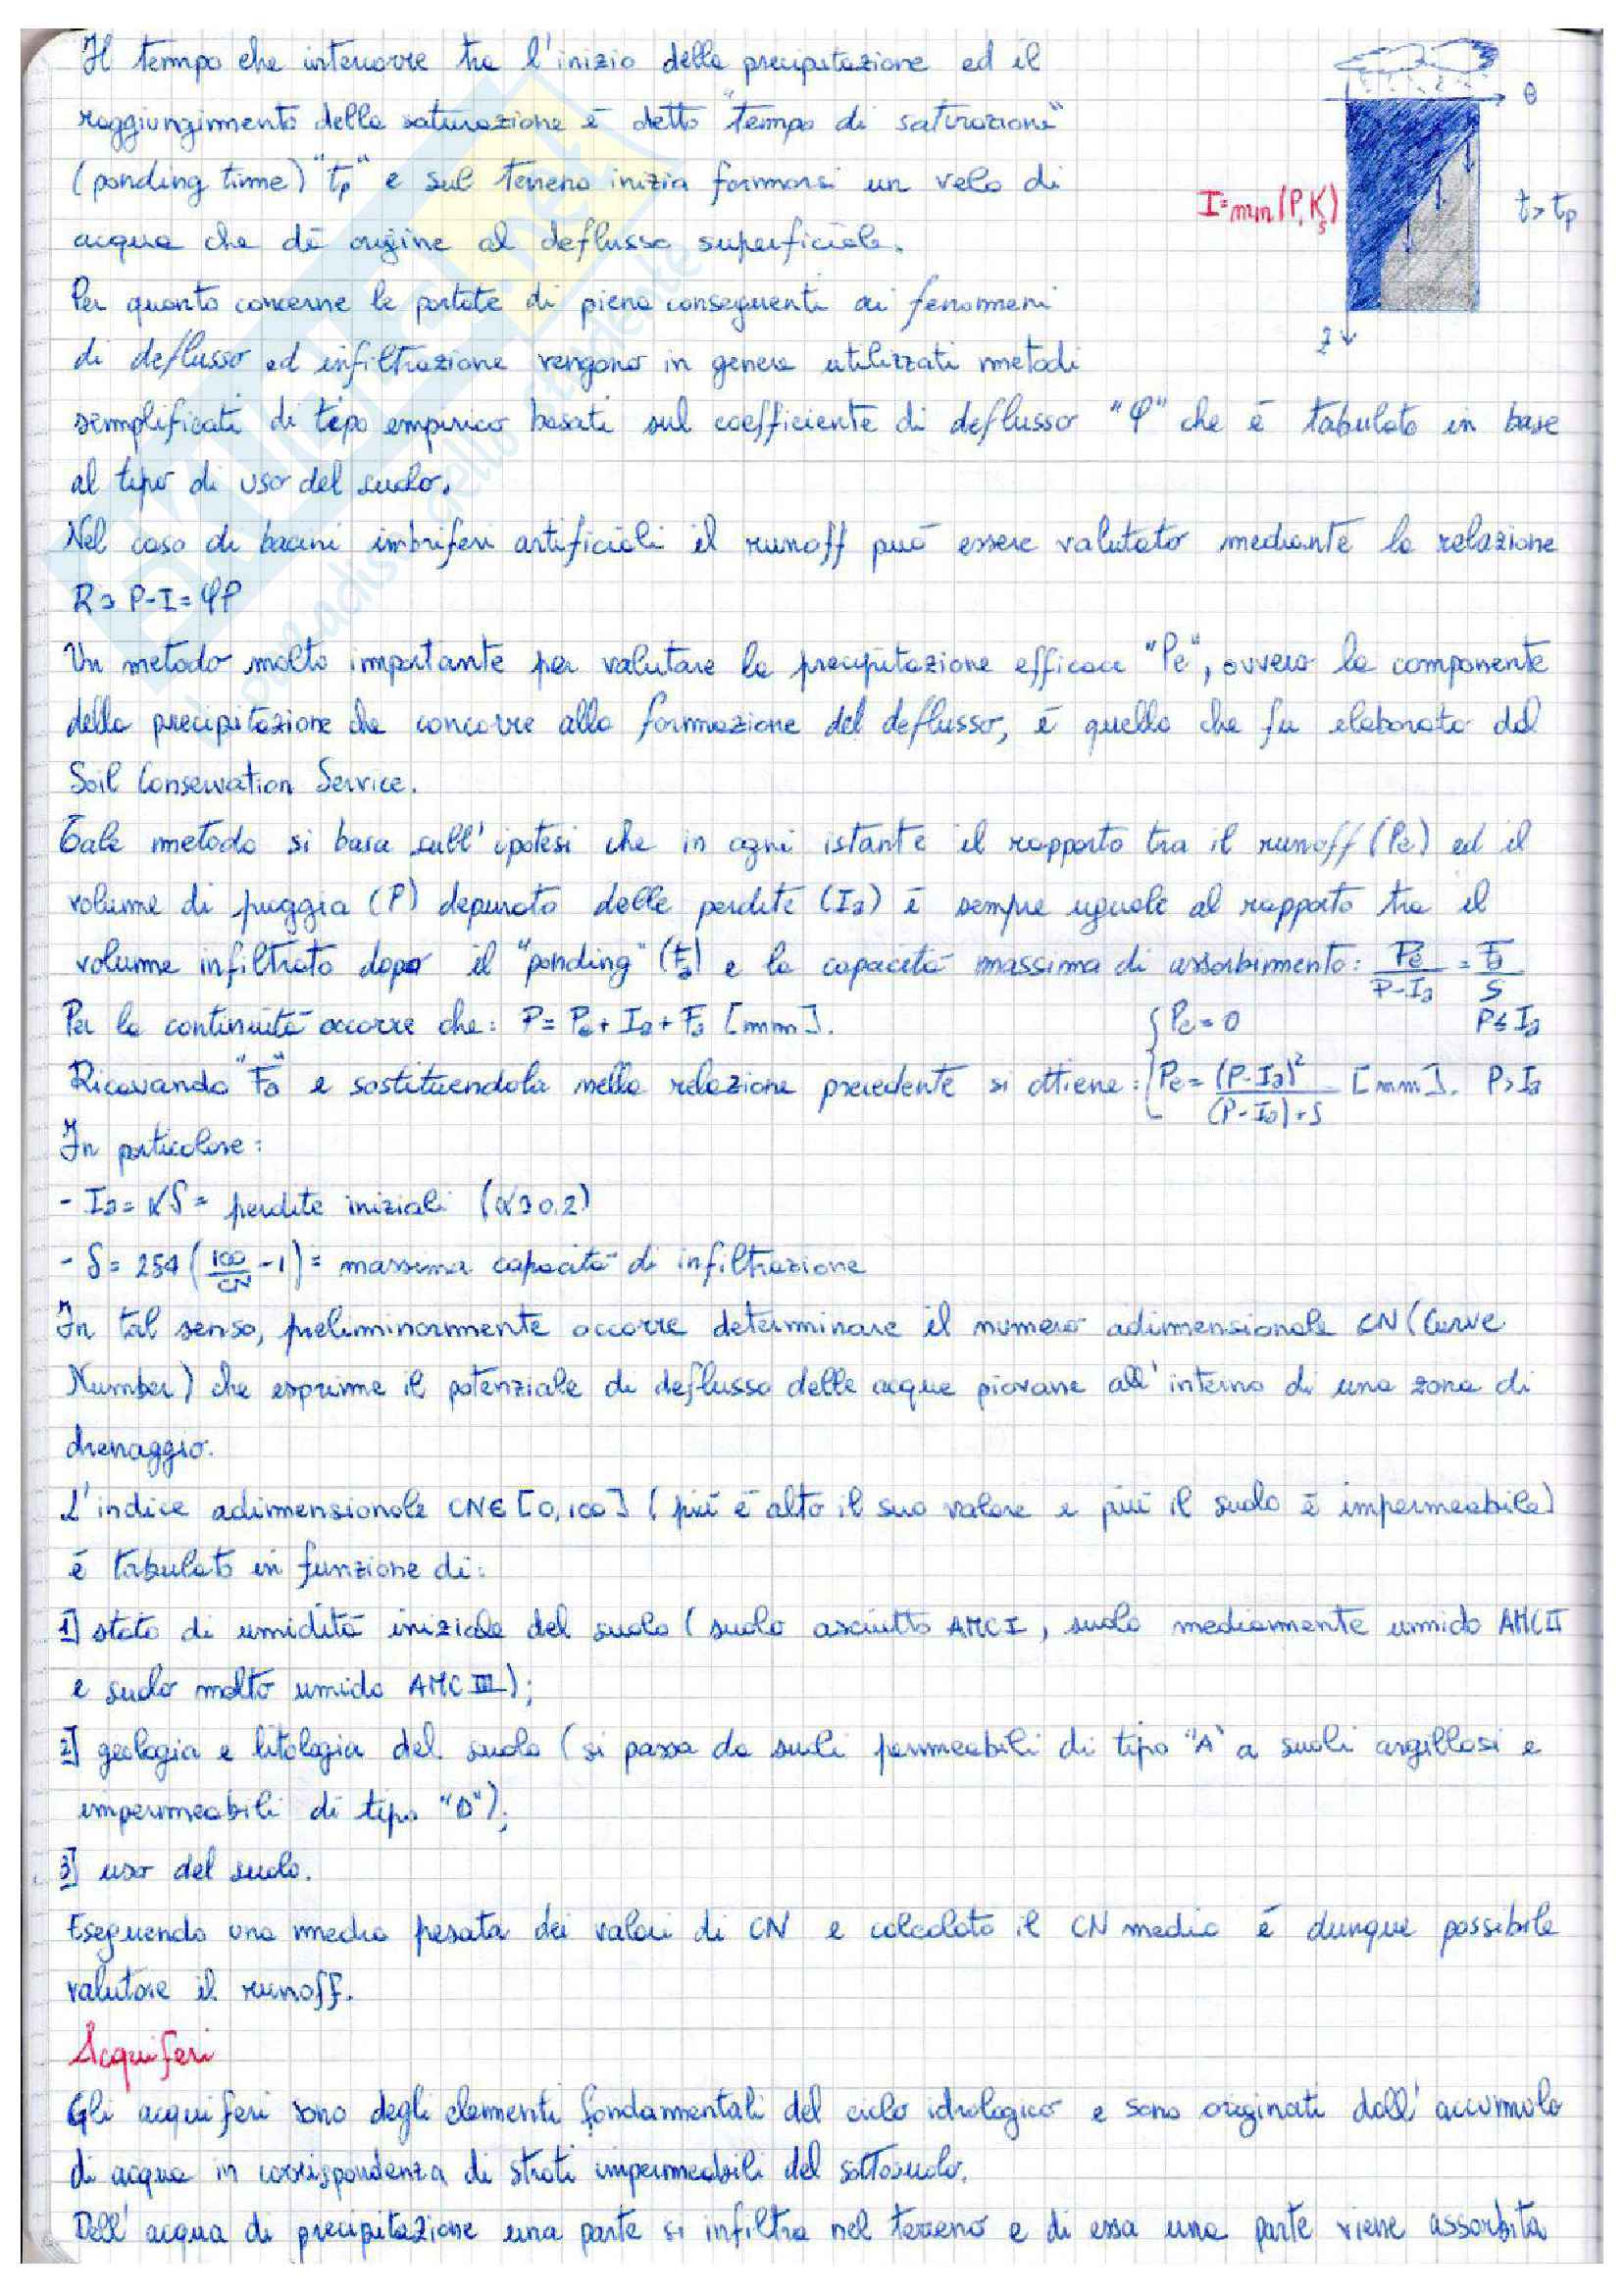 Il tempo che intercorre tra l'inizio della precipitazione ed il
raggiungimento della saturazione è detto "tempo di saturazione"
(ponding time) "tp" e sul terreno inizia formarsi un velo di
acqua che dà origine al deflusso superficiale.
θ
I=min(P,Ks)
t>tp
z
Per quanto concerne le portate di piena conseguenti ai fenomeni
di deflusso ed infiltrazione vengono in genere utilizzati metodi
semplificati di tipo empirico basati sul coefficiente di deflusso "φ" che è tabulato in base
al tipo di uso del suolo.
Nel caso di bacini imbriferi artificiali il runoff può essere valutato mediante la relazione
R = P-I = φP
Un metodo molto importante per valutare la precipitazione efficace "Pe", ovvero la componente
della precipitazione che concorre alla formazione del deflusso, è quello che fu elaborato dal
Soil Conservation Service.
Tale metodo si basa sull'ipotesi che in ogni istante il rapporto tra il runoff (Pe) ed il
volume di pioggia (P) depurato delle perdite (Ia) è sempre uguale al rapporto tra il
volume infiltrato dopo il "ponding" (Fa) e la capacità massima di assorbimento: Pe/(P-Ia) = Fa/S
Per la continuità occorre che: P = Pe + Ia + Fa [mm]. { Pe = 0 P≤Ia
Ricavando "Fa" e sostituendola nella relazione precedente si ottiene: { Pe = (P-Ia)²/((P-Ia)+S) [mm]. P>Ia
In particolare:
- Ia = αS = perdite iniziali (α=0,2)
- S = 254 (100/CN -1) = massima capacità di infiltrazione
In tal senso, preliminarmente occorre determinare il numero adimensionale CN (Curve
Number) che esprime il potenziale di deflusso delle acque piovane all'interno di una zona di
drenaggio.
L'indice adimensionale CN∈[0,100] (più è alto il suo valore e più il suolo è impermeabile)
è tabulato in funzione di:
1] stato di umidità iniziale del suolo (suolo asciutto AMC I, suolo mediamente umido AMC II
e suolo molto umido AMC III);
2] geologia e litologia del suolo (si passa da suoli permeabili di tipo "A" a suoli argillosi e
impermeabili di tipo "D");
3] uso del suolo.
Eseguendo una media pesata dei valori di CN e calcolato il CN medio è dunque possibile
valutare il runoff.
Acquiferi
Gli acquiferi sono degli elementi fondamentali del ciclo idrologico e sono originati dall'accumulo
di acqua in corrispondenza di strati impermeabili del sottosuolo.
Dell'acqua di precipitazione una parte si infiltra nel terreno e di essa una parte viene assorbita